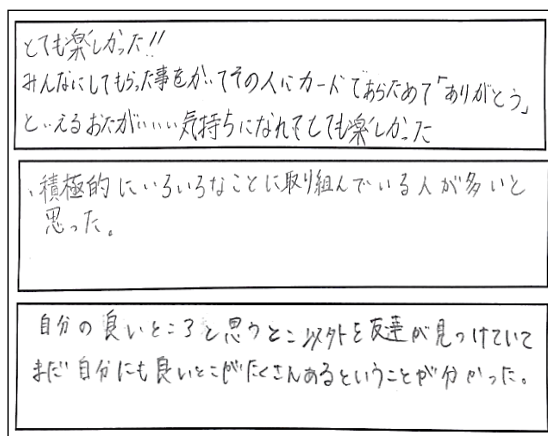 とても楽しかった!!
みんなにしてもらった事をかいてその人にカードであらためて「ありがとう」
といえるおたがいいい気持ちになれてとても楽しかった
・積極的にいろいろなことに取り組んでいる人が多いと
思った。
自分の良いところと思うとこ以外を友達が見つけていて
まだ自分にも良いとこがたくさんあるということが分かった。